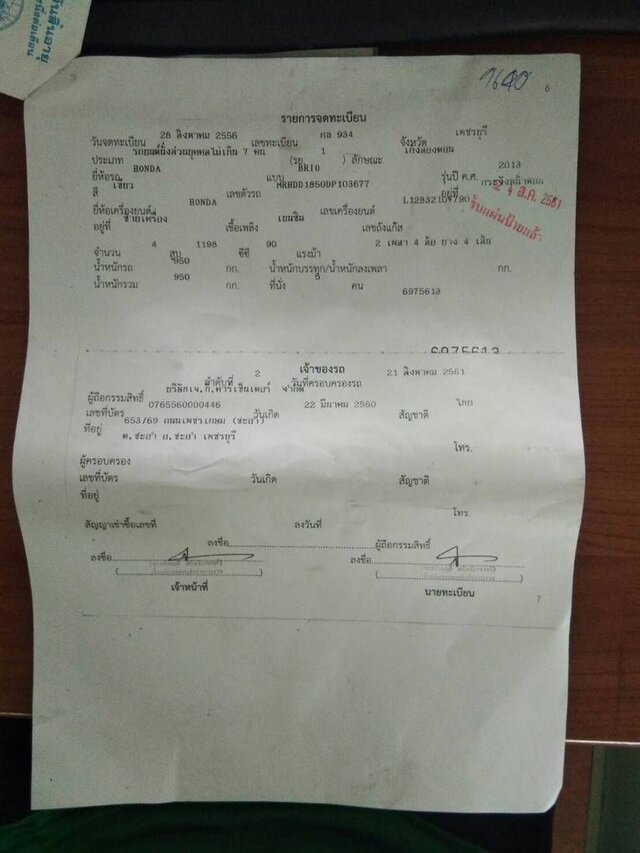 1640
6
รายการจดทะเบียน
วันจดทะเบียน 28 สิงหาคม 2556 เลขทะเบียน กธ 934 จังหวัด เพชรบุรี
ประเภท รถยนต์นั่งส่วนบุคคลไม่เกิน 7 คน (รย. 1 ) ลักษณะ เก๋งสองตอน
ยี่ห้อรถ HONDA แบบ BRIO รุ่นปี ค.ศ. 2013
สี เขียว เลขตัวรถ MRHDD1850DP103677 อยู่ที่ กระจังหน้าตอน
ยี่ห้อเครื่องยนต์ HONDA เลขเครื่องยนต์ L12B32107790
อยู่ที่ ซ้ายเครื่อง เชื้อเพลิง เบนซิน เลขถังแก๊ส
จำนวน 4 สูบ 1198 ซีซี 90 แรงม้า 2 เพลา 4 ล้อ ยาง 4 เส้น
น้ำหนักรถ 950 กก. น้ำหนักบรรทุก/น้ำหนักลงเพลา กก.
น้ำหนักรวม 950 กก. ที่นั่ง คน
6975613
ส.ค. 2561
รับแผ่นป้ายแล้ว
6975613
เจ้าของรถ
ลำดับที่ 2 วันที่ครอบครองรถ 21 สิงหาคม 2561
ผู้ถือกรรมสิทธิ์
เลขที่บัตร 0765560000446 วันเกิด 22 มีนาคม 2560 สัญชาติ ไทย
ที่อยู่ 653/69 ถนนเพชรเกษม (ชะอำ)
ต.ชะอำ อ.ชะอำ เพชรบุรี
โทร.
ผู้ครอบครอง
เลขที่บัตร วันเกิด สัญชาติ
ที่อยู่
โทร.
สัญญาเช่าซื้อเลขที่ ลงวันที่
ลงชื่อ ผู้ถือกรรมสิทธิ์
ลงชื่อ ลงชื่อ
เจ้าหน้าที่ นายทะเบียน
7